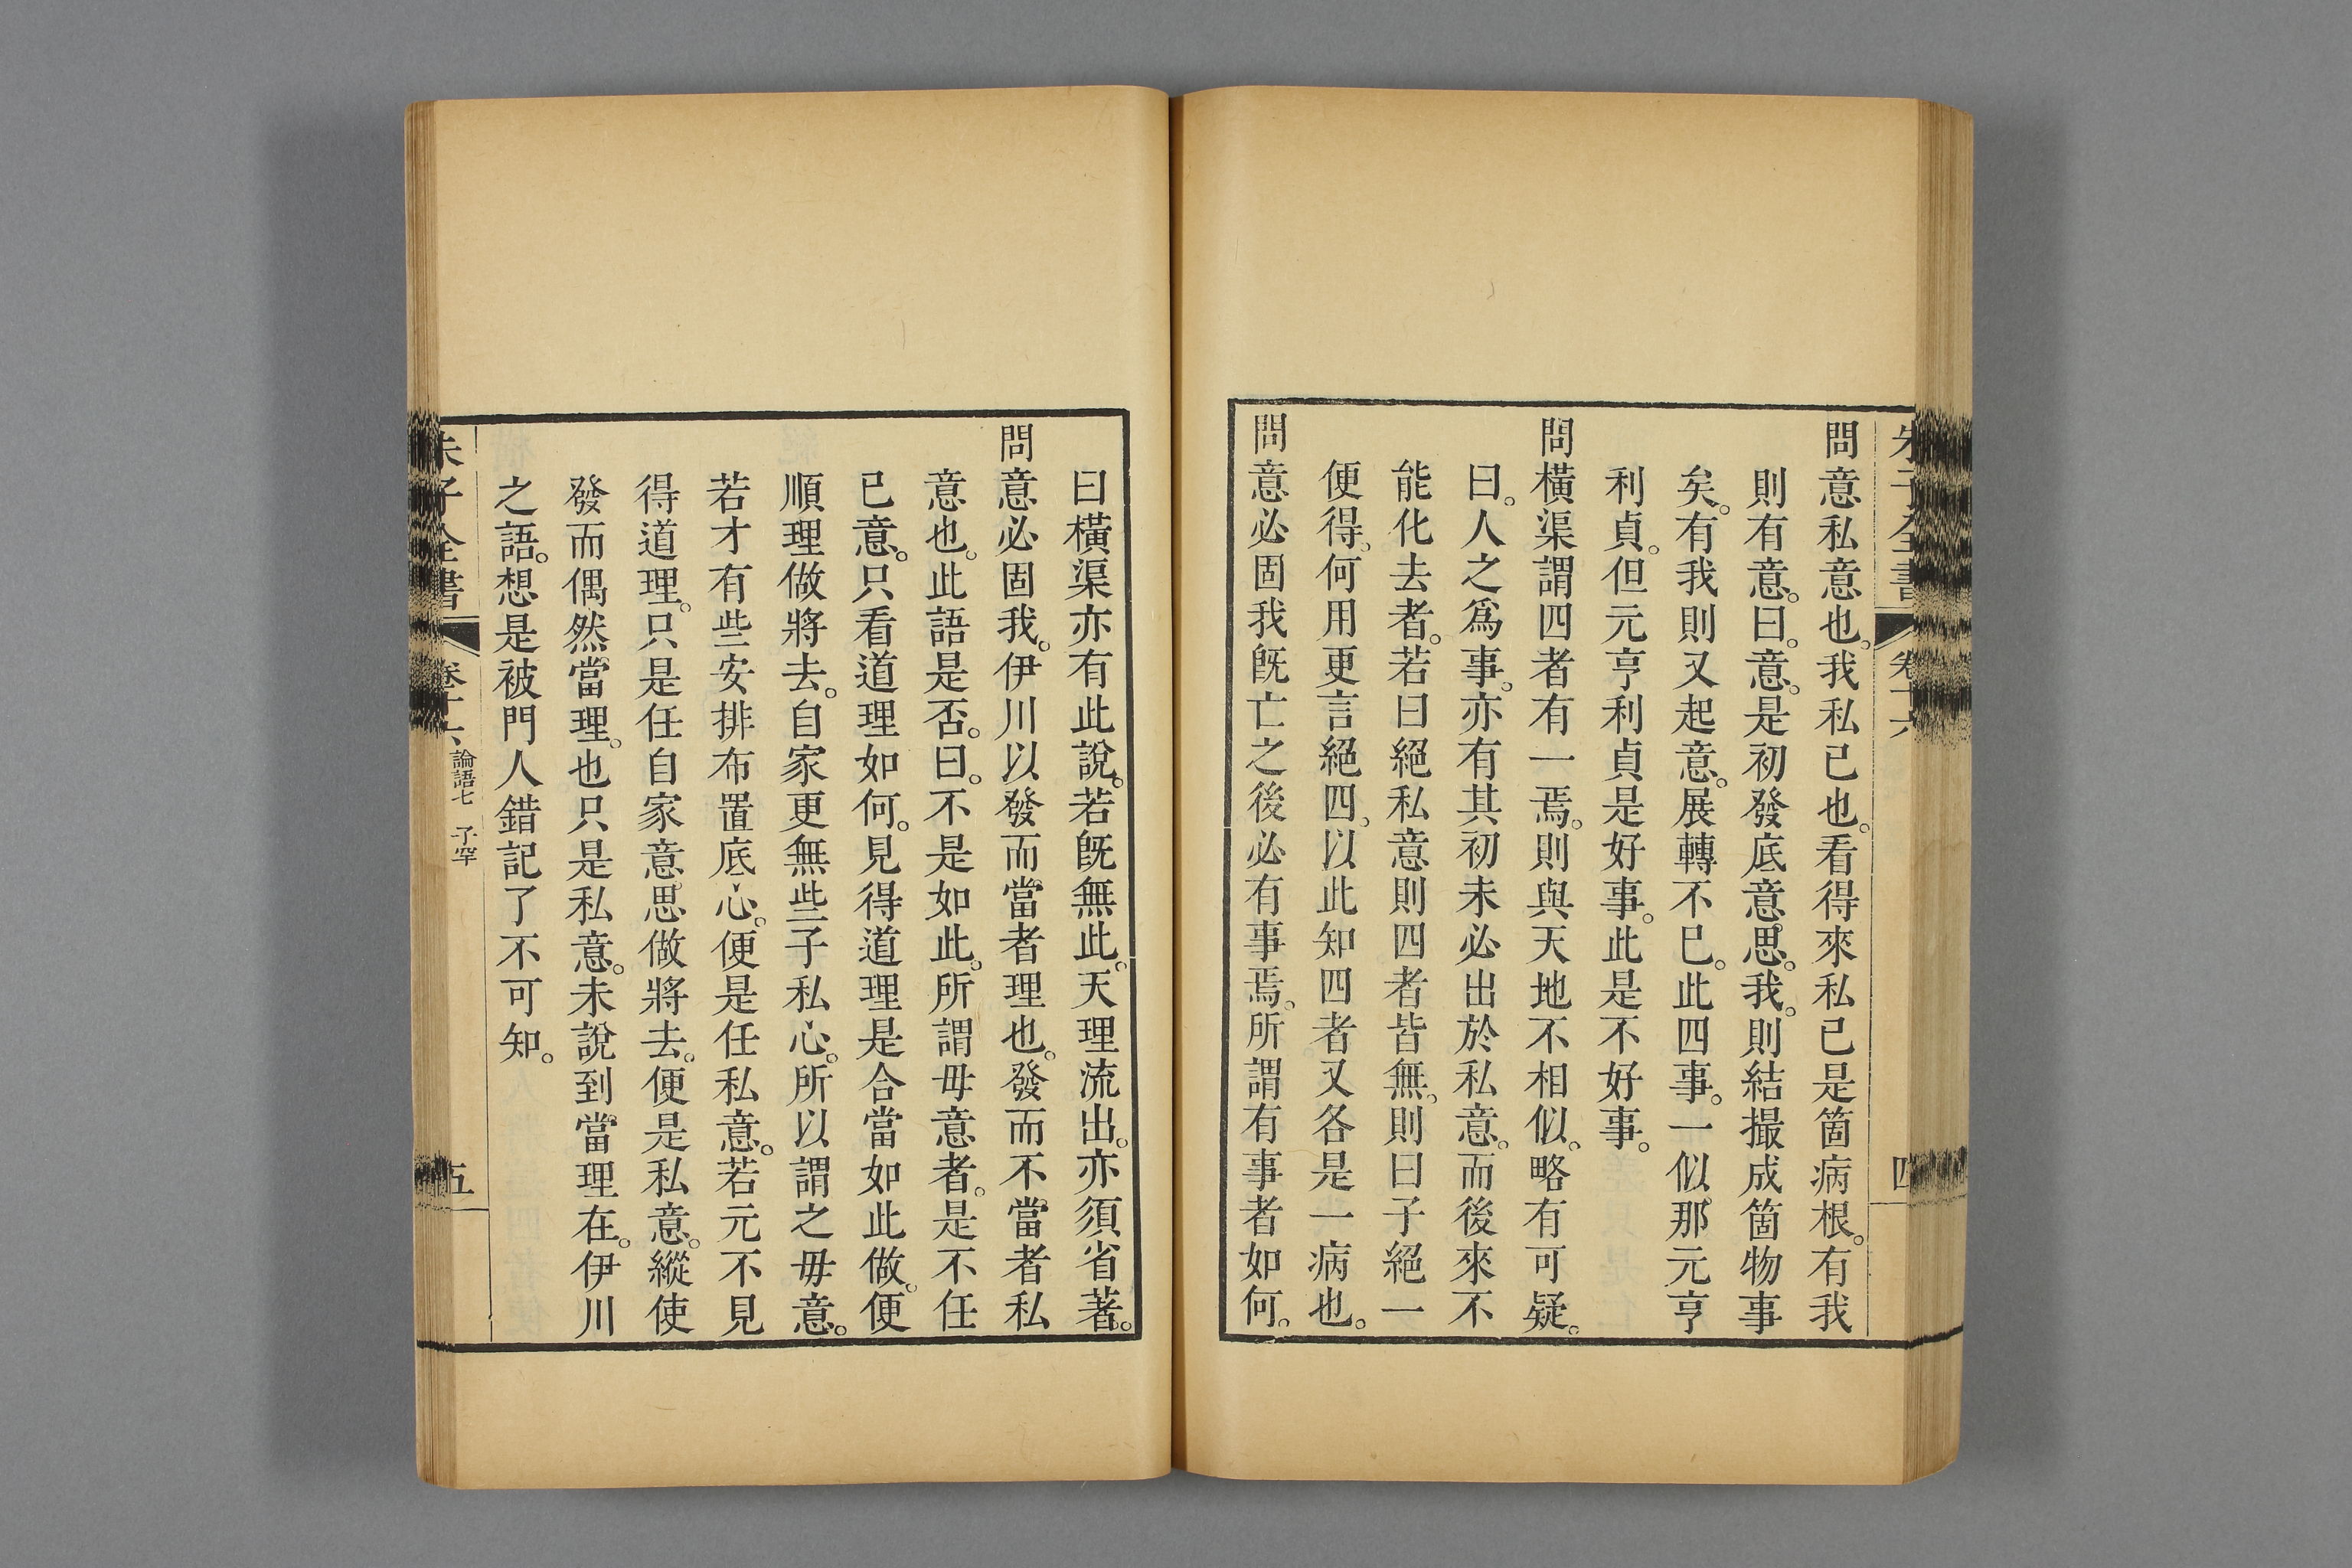 朱子全書 卷十六 四
問意私意也。我私已也。看得來私已是箇病根。有我
則有意。曰。意。是初發底意思。我。則結撮成箇物事
矣。有我則又起意。展轉不已。此四事。一似那元亨
利貞。但元亨利貞是好事。此是不好事。
問橫渠謂四者有一焉。則與天地不相似。略有可疑。
曰。人之爲事。亦有其初未必出於私意。而後來不
能化去者。若曰絕私意則四者皆無。則曰子絕一
便得。何用更言絕四。以此知四者又各是一病也。
問意必固我旣亡之後必有事焉。所謂有事者如何。
曰橫渠亦有此說。若旣無此。天理流出。亦須省著。
問意必固我。伊川以發而當者理也。發而不當者私
意也。此語是否。曰。不是如此。所謂毋意者。是不任
已意。只看道理如何。見得道理是合當如此做。便
順理做將去。自家更無些子私心。所以謂之毋意。
若才有些安排布置底心。便是任私意。若元不見
得道理。只是任自家意思做將去。便是私意。縱使
發而偶然當理。也只是私意。未說到當理在。伊川
之語。想是被門人錯記了不可知。
朱子全書 卷十六 論語七 子罕 五